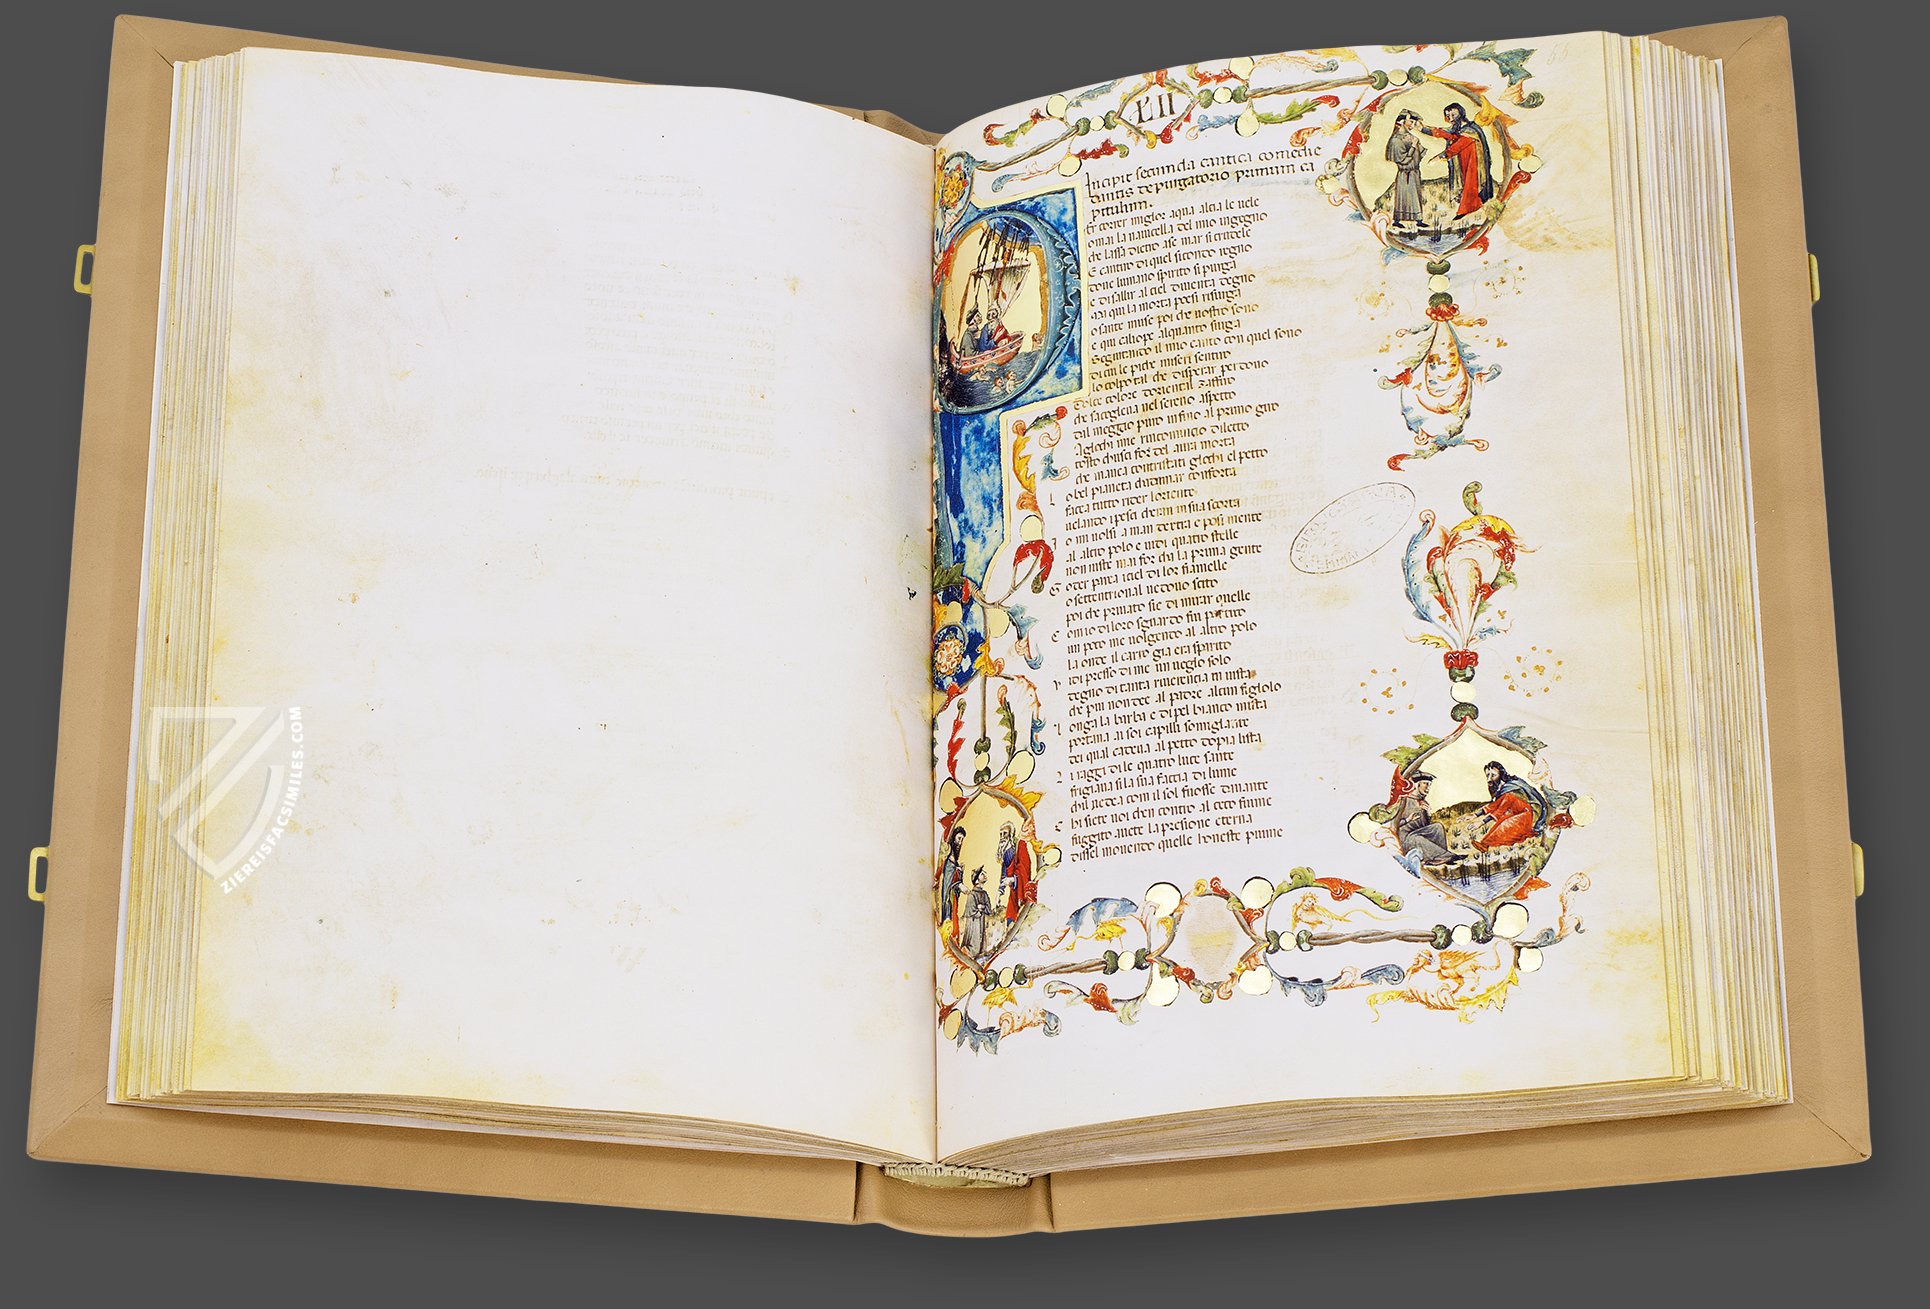 L II
Incipit secunda cantica comedie
dantis de purgatorio primum ca
pitulum.
er correr miglor aqua alcia le uele
omai la nauicella del mio ingegno
che lassa dietro a se mar si crudele
E cantiro di quel secondo regno
doue lumano spirito si purga
e di sallir al ciel diuenta degno
Ma qui la morta poesi risurga
o sante muse poi che uostro sono
e qui caliope alquanto surga
Seguitando il mio canto con quel sono
di cui le piche miseri sentiro
lo colpo tal che disperar perdono
Dolce colore doriental zaffiro
che sacoglieua nel sereno aspetto
dal meggio puro infino al primo giro
Aglochi mie rincomincio diletto
tosto chusci for del aura morta
che mauea contristati glochi el petto
Lo bel pianeta chadamar conforta
facea tutto rider loriente
uelando i pesci cheran in sua scorta
Io mi uolsi a man destra e posi mente
al altro polo e uidi quatro stelle
non uiste mai for cha la prima gente
Goder parea i ciel di lor fiamelle
o settentrional uedouo scito
poi che priuato sie di mirar quelle
Como io di loro sguardo fui partito
un poco me uolgendo al altro polo
la onde il carro gia era sparito
Vidi presso di me un ueglo solo
degno di tanta riuerencia in uista
che piu non dee al padre alcun figliolo
Longa la barba e di pel bianco mista
portaua ai soi capilli somigliante
dei qual cadea al petto dopia lista
I raggi di le quatro luce sante
frigiaua si la sua faccia di lume
chil uedea com il sol fuosse dauante
Chi siete uoi chen contro al ceco fiume
fuggito auete la presione eterna
dissel mouendo quelle honeste piume
ZIEREISFACSIMILES.COM